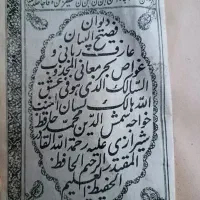 دیوان
فصیح اللسان
عارف ربانی و
غواص بحر معانی المجذوب
السالک الذی هو فی عشق
الله هالک لسان الغیب
خواجه شمس الدین محمد حافظ
شیرازی علیه رحمة الله القادر
المقتدر الرحیم الحافظ
الحفیظ